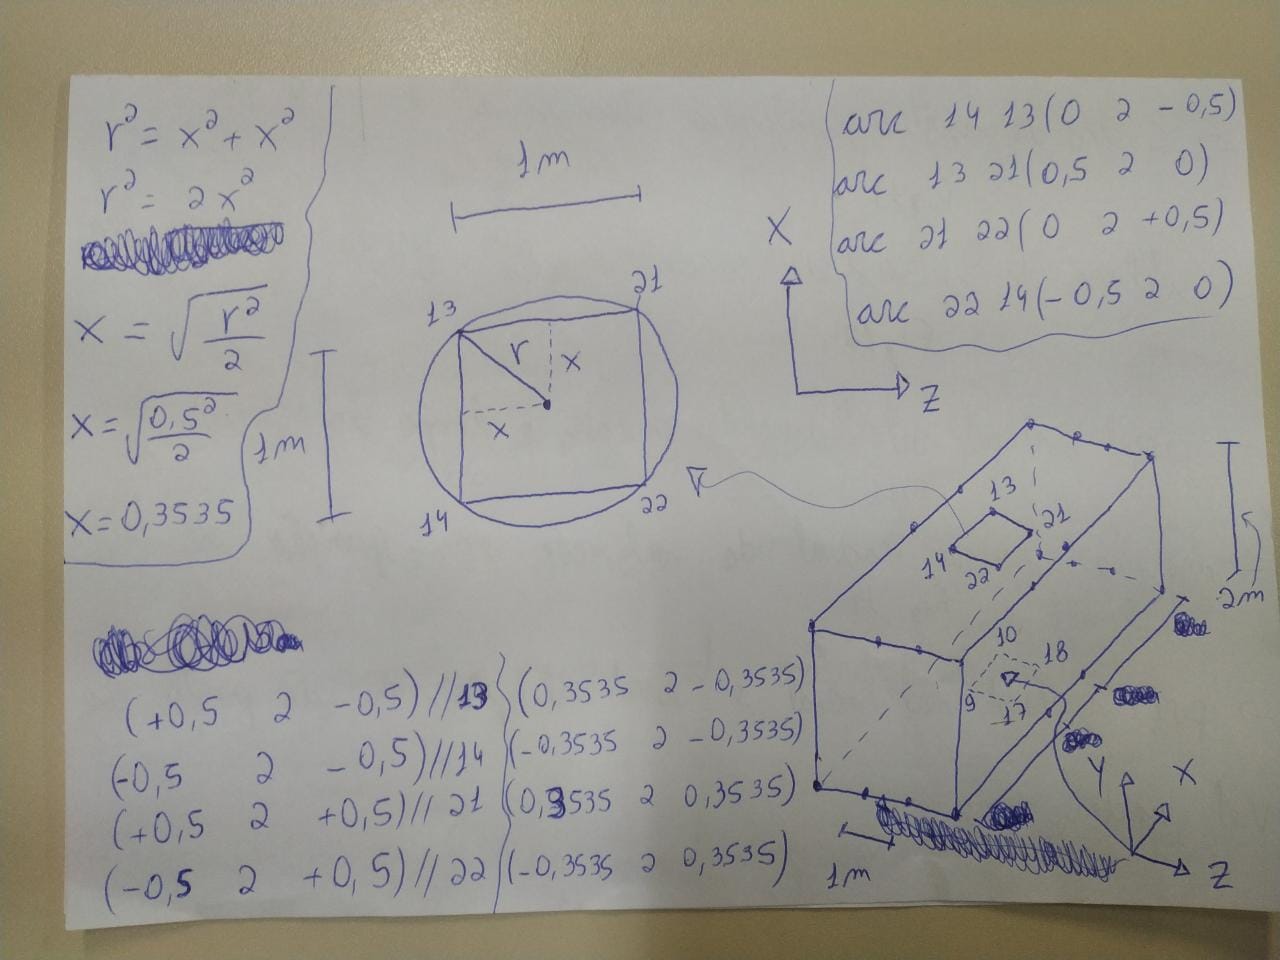 r² = x² + x²
r² = 2x²
x = √(r²/2)
x = √(0,5²/2)
x = 0,3535
1m
13
21
r
x
x
14
22
1m
X
Z
arc 14 13 (0 2 -0,5)
arc 13 21 (0,5 2 0)
arc 21 22 (0 2 +0,5)
arc 22 14 (-0,5 2 0)
13
21
14
22
10
18
9
17
2m
1m
Y
X
Z
(+0,5 2 -0,5) // 13 (0,3535 2 -0,3535)
(-0,5 2 -0,5) // 14 (-0,3535 2 -0,3535)
(+0,5 2 +0,5) // 21 (0,3535 2 0,3535)
(-0,5 2 +0,5) // 22 (-0,3535 2 0,3535)